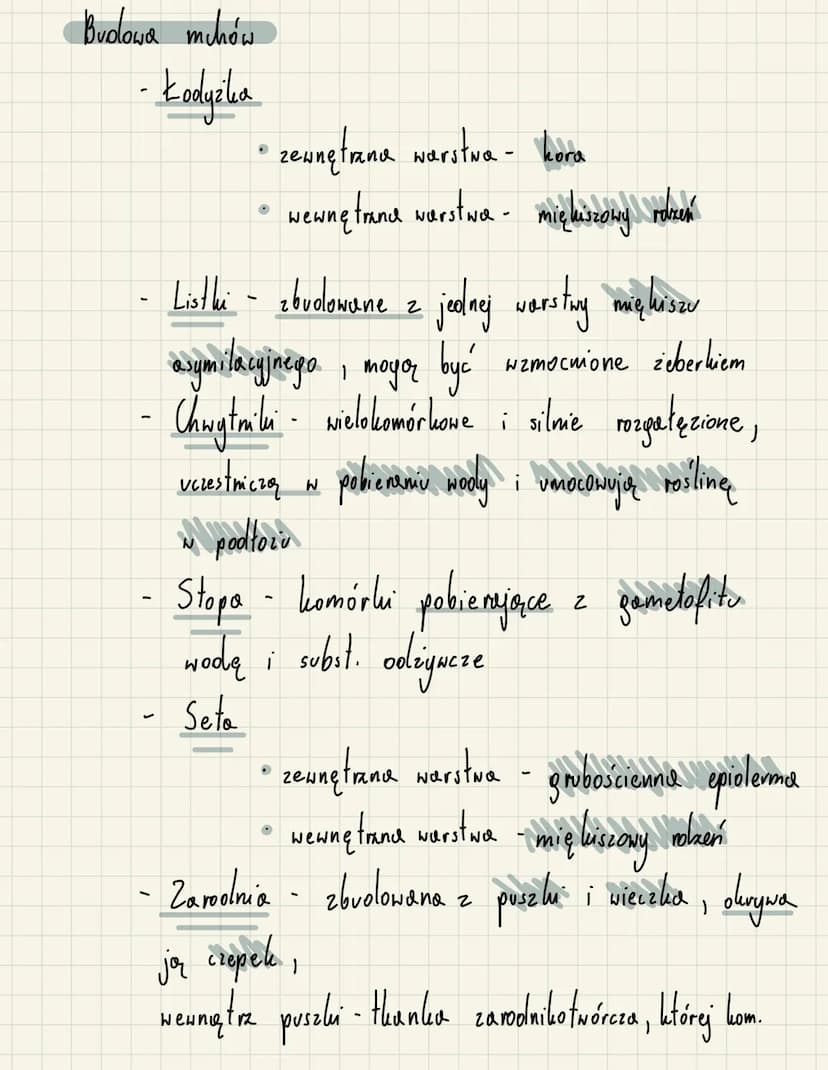 Budowa mchów
- Łodyżka
• zewnętrzna warstwa - kora
• wewnętrzna warstwa - miękiszowy rdzeń
- Listki - zbudowane z jednej warstwy miękiszu
asymilacyjnego, mogą być wzmocnione żeberkiem
- Chwytniki - wielokomórkowe i silnie rozgałęzione,
uczestniczą w pobieraniu wody i umocowują roślinę
w podłożu
- Stopa - komórki pobierające z gametofitu
wodę i subst. odżywcze
- Seta
• zewnętrzna warstwa - grubościenna epiderma
• wewnętrzna warstwa - miękiszowy rdzeń
- Zarodnia - zbudowana z puszki i wieczka, okrywa
ją czepek,
wewnątrz puszki - tkanka zarodnikotwórcza, której kom.